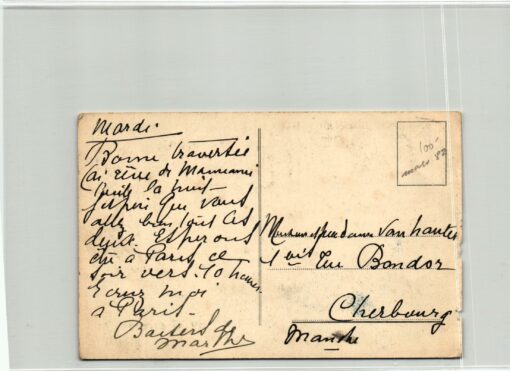 Mardi
Bonne traversée
J'ai rêvé de
toute la nuit
J'espère que vous
allez bien tout les
deux. Espérons
être à Paris ce
soir vers 10 heures
Ecrivez moi
à Paris
Baisers de
Marthe
100
mars 82
Monsieur Madame van
1 bis Rue Bondor
Cherbourg
Manche